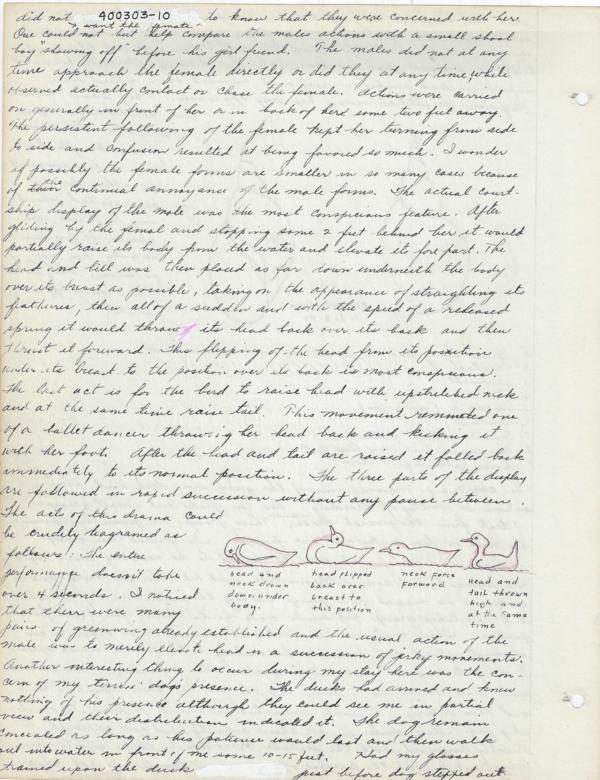 400303-10
did not want the female to know that they were concerned with her.
One could not but help compare the males actions with a small shool
boy "showing off" before his girl friend. The males did not at any
time approach the female directly or did they at any time while
observed actually contact or chase the female. Actions were carried
on generally in front of her or in back of her some two feet away.
The persistent following of the female kept her turning from side
to side and confusion resulted at being favored so much. I wonder
if possibly the female forms are smaller in so many cases because
of the continual annoyance of the male forms. The actual court-
ship display of the male was the most conspicious feature. After
gliding by the femal and stopping some 2 feet behind her it would
partially raise its body from the water and elevate its fore part. The
head and bill was then placed as far down underneath the body
over its breast as possible, taking on the appearance of straighting its
feathures, then all of a sudden and with the speed of a released
spring it would throw its head back over its back and then
thrust it forward. This flipping of the head from its position
under its breast to the position over its back is most conspicious.
The last act is for the bird to raise head with upstretched neck
and at the same time raise tail. This movement reminded one
of a ballet dancer throwing her head back and kicking it
with her foot. After the head and tail are raised it falled back
immediately to its normal position. The three parts of the display
are followed in rapid succession without any pause between.
The acts of this drama could
be crudely diagramed as
follows: The entire
performange doesn't take
over 4 seconds. I noticed
that there were many
head and
neck drown
down under
body.
head flipped
back over
breast to
this position
neck force
forward
Head and
tail thrown
high and
at the same
time
pairs of greenwing already established and the usual action of the
male was to merily elevate head in a succession of jerky movements.
Another interesting thing to occur during my stay here was the con-
cern of my terrier dog's presence. The ducks had arrived and knew
nothing of his presence although they could see me in partial
view and their distribution indicated it. The dog remain
concealed as long as his patience would last and then walk
out into water in front of me some 10-15 feet. Had my glasses
trained upon the duck just before dog stepped out